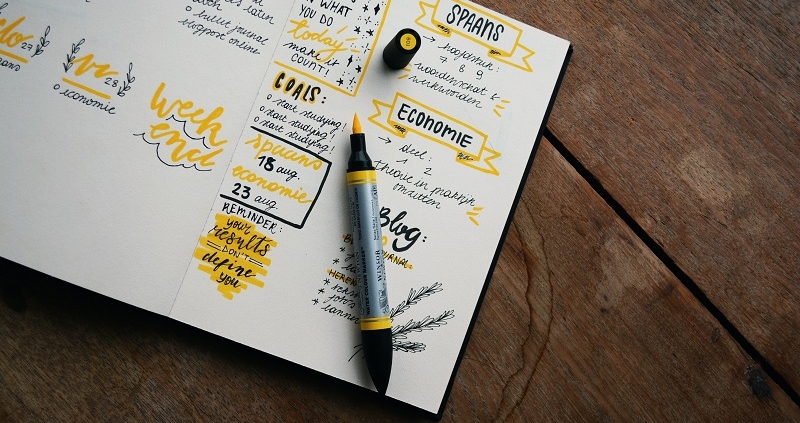 bullet journal
support online
do 27
vr 28
o economie
Week
end
N WHAT
YOU DO
today
make it
COUNT!
GOALS:
o start studying!
o start studying!
o start studying!
spaans
18 aug.
economie
23 aug.
REMINDER:
your
results
DON'T
define
you
SPAANS
→ hoofdstuk:
7 8 9
woordenschat &
werkwoorden
ECONOMIE
→ deel:
1 2
theorie in
omzetten
Blog:
WINSOR
WATER COLOUR MARKER